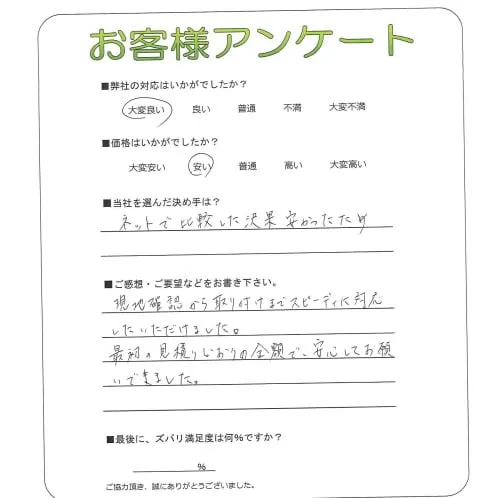 お客様アンケート
■弊社の対応はいかがでしたか？
大変良い 良い 普通 不満 大変不満
■価格はいかがでしたか？
大変安い 安い 普通 高い 大変高い
■当社を選んだ決め手は？
ネットで比較した決果安かったため
■ご感想・ご要望などをお書き下さい。
現地確認から取り付けまでスピーディに対応
したいただけました。
最初の見積りどおりの金額で、安心してお願
いできました。
■最後に、ズバリ満足度は何%ですか？
%
ご協力頂き、誠にありがとうございました。